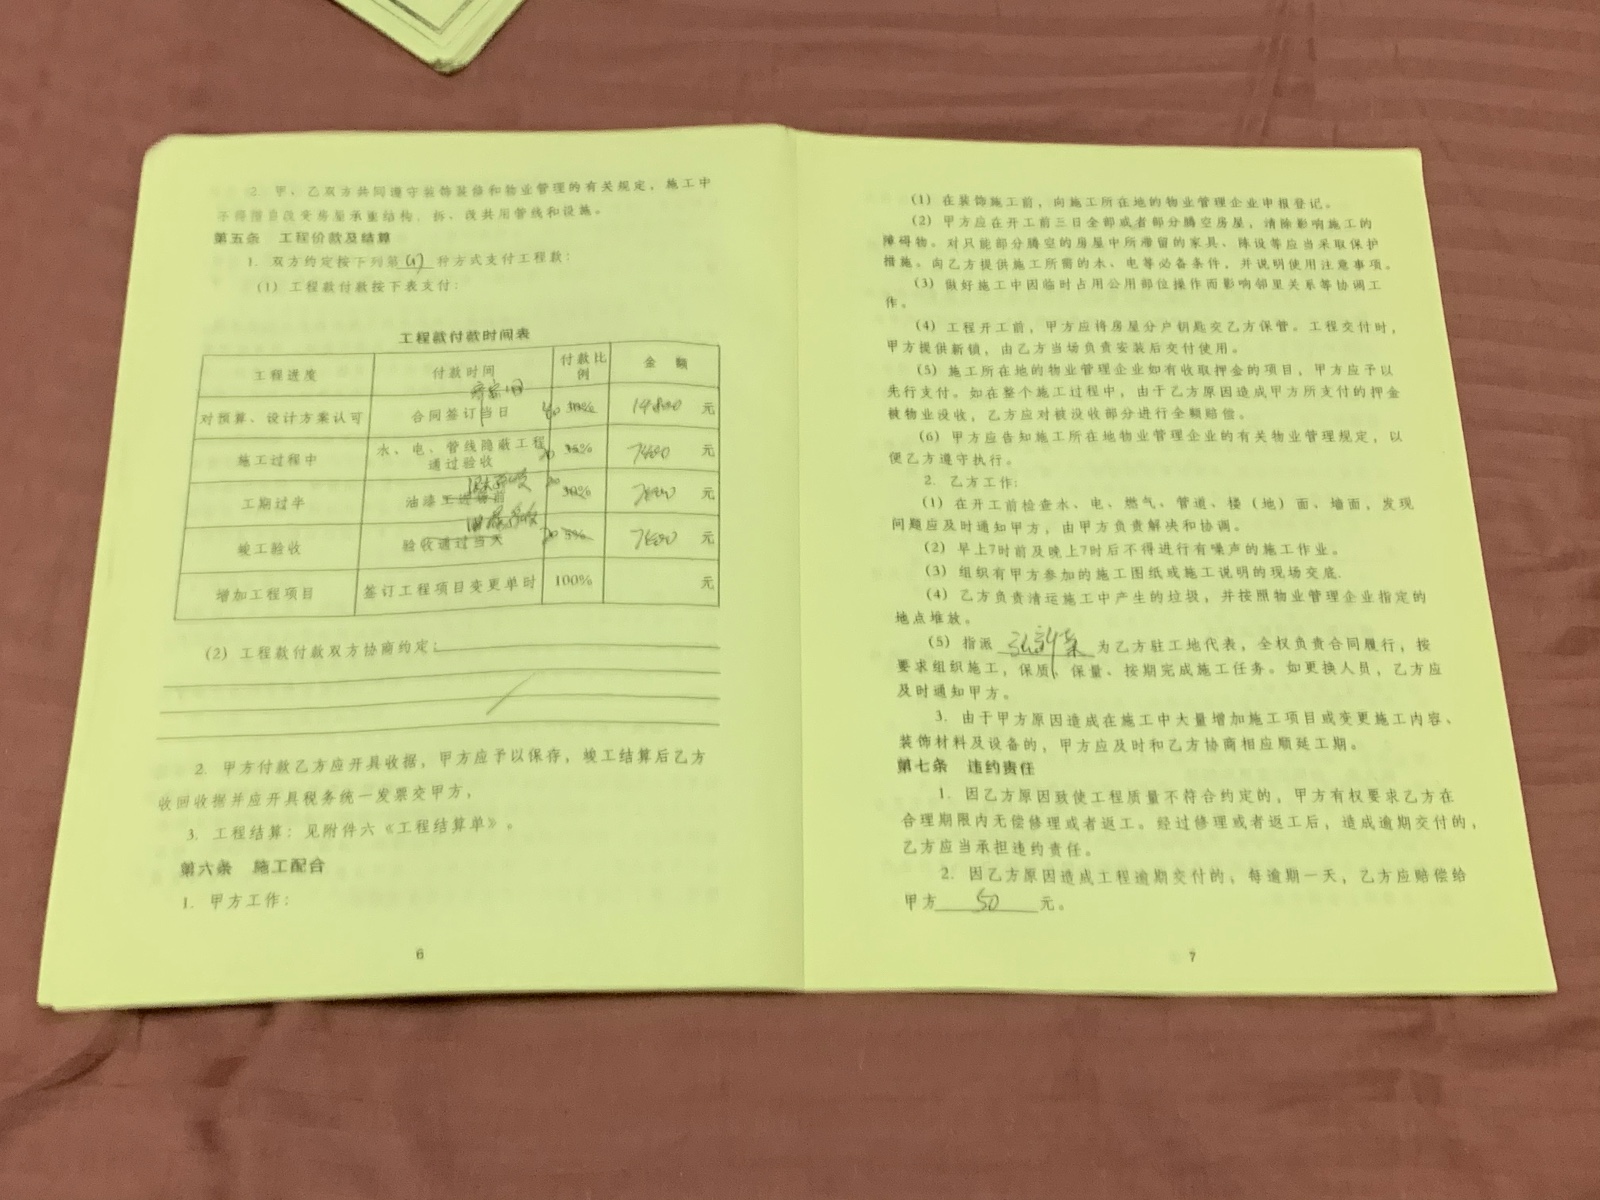 2. 甲、乙双方共同遵守装饰装修和物业管理的有关规定，施工中
不得擅自改变房屋承重结构，拆、改共用管线和设施。
第五条 工程价款及结算
1. 双方约定按下列第(1)种方式支付工程款：
(1) 工程款付款按下表支付：
工程款付款时间表
工程进度 付款时间 付款比例 金 额
对预算、设计方案认可 合同签订当日 40 30% 元
施工过程中 水、电、管线隐蔽工程通过验收 20 35% 元
工期过半 油漆 20 30% 元
竣工验收 验收通过当天 20 5% 元
增加工程项目 签订工程项目变更单时 100% 元
(2) 工程款付款双方协商约定：
2. 甲方付款乙方应开具收据，甲方应予以保存，竣工结算后乙方
收回收据并应开具税务统一发票交甲方，
3. 工程结算：见附件六《工程结算单》。
第六条 施工配合
1. 甲方工作：
6
(1) 在装饰施工前，向施工所在地的物业管理企业申报登记。
(2) 甲方应在开工前三日全部或者部分腾空房屋，清除影响施工的
障碍物。对只能部分腾空的房屋中所滞留的家具、陈设等应当采取保护
措施。向乙方提供施工所需的水、电等必备条件，并说明使用注意事项。
(3) 做好施工中因临时占用公用部位操作而影响邻里关系等协调工
作。
(4) 工程开工前，甲方应将房屋分户钥匙交乙方保管。工程交付时，
甲方提供新锁，由乙方当场负责安装后交付使用。
(5) 施工所在地的物业管理企业如有收取押金的项目，甲方应予以
先行支付。如在整个施工过程中，由于乙方原因造成甲方所支付的押金
被物业没收，乙方应对被没收部分进行全额赔偿。
(6) 甲方应告知施工所在地物业管理企业的有关物业管理规定，以
便乙方遵守执行。
2. 乙方工作：
(1) 在开工前检查水、电、燃气、管道、楼（地）面、墙面，发现
问题应及时通知甲方，由甲方负责解决和协调。
(2) 早上7时前及晚上7时后不得进行有噪声的施工作业。
(3) 组织有甲方参加的施工图纸或施工说明的现场交底.
(4) 乙方负责清运施工中产生的垃圾，并按照物业管理企业指定的
地点堆放。
(5) 指派 为乙方驻工地代表，全权负责合同履行，按
要求组织施工，保质、保量、按期完成施工任务。如更换人员，乙方应
及时通知甲方。
3. 由于甲方原因造成在施工中大量增加施工项目或变更施工内容、
装饰材料及设备的，甲方应及时和乙方协商相应顺延工期。
第七条 违约责任
1. 因乙方原因致使工程质量不符合约定的，甲方有权要求乙方在
合理期限内无偿修理或者返工。经过修理或者返工后，造成逾期交付的，
乙方应当承担违约责任。
2. 因乙方原因造成工程逾期交付的，每逾期一天，乙方应赔偿给
甲方 50 元。
7